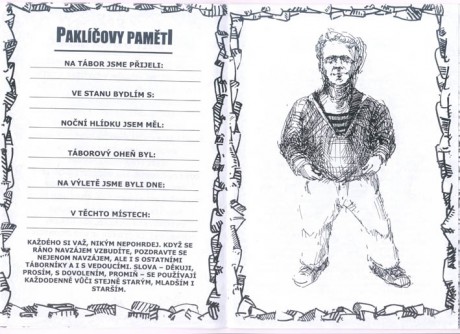 PAKLÍČOVY PAMĚTI
NA TÁBOR JSME PŘIJELI:
VE STANU BYDLÍM S:
NOČNÍ HLÍDKU JSEM MĚL:
TÁBOROVÝ OHEŇ BYL:
NA VÝLETĚ JSME BYLI DNE:
V TĚCHTO MÍSTECH:
KAŽDÉHO SI VAŽ, NIKÝM NEPOHRDEJ. KDYŽ SE
RÁNO NAVZÁJEM VZBUDÍTE, POZDRAVTE SE
NEJENOM NAVZÁJEM, ALE I S OSTATNÍMI
TÁBORNÍKY A I S VEDOUCÍMI. SLOVA – DĚKUJI,
PROSÍM, S DOVOLENÍM, PROMIŇ – SE POUŽÍVAJÍ
KAŽDODENNĚ VŮČI STEJNĚ STARÝM, MLADŠÍM I
STARŠÍM.